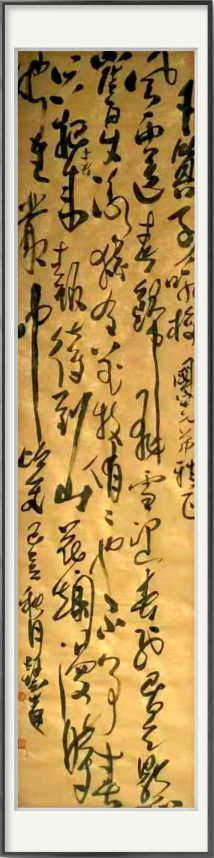 卜算子咏梅
风雨送春歸飛雪迎春到已是懸
崖百丈冰猶有花枝俏俏也不争春
只把春来報待到山花爛漫時
她在叢中笑 己亥秋月